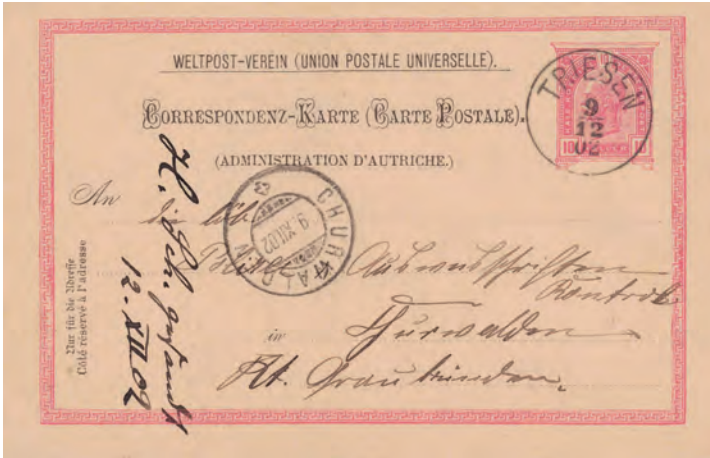 WELTPOST-VEREIN (UNION POSTALE UNIVERSELLE).
CORRESPONDENZ-KARTE (CARTE POSTALE).
(ADMINISTRATION D'AUTRICHE.)
TRIESEN
9
12
02
10 10
An die löbl.
CHURWALDEN
9. XII. 02
Ausweisschriften
Kontrole
in Churwalden
Kt. Graubünden.
Nur für die Adresse
Côté réservé à l'adresse
H. Sch. gesandt
12. XII 02